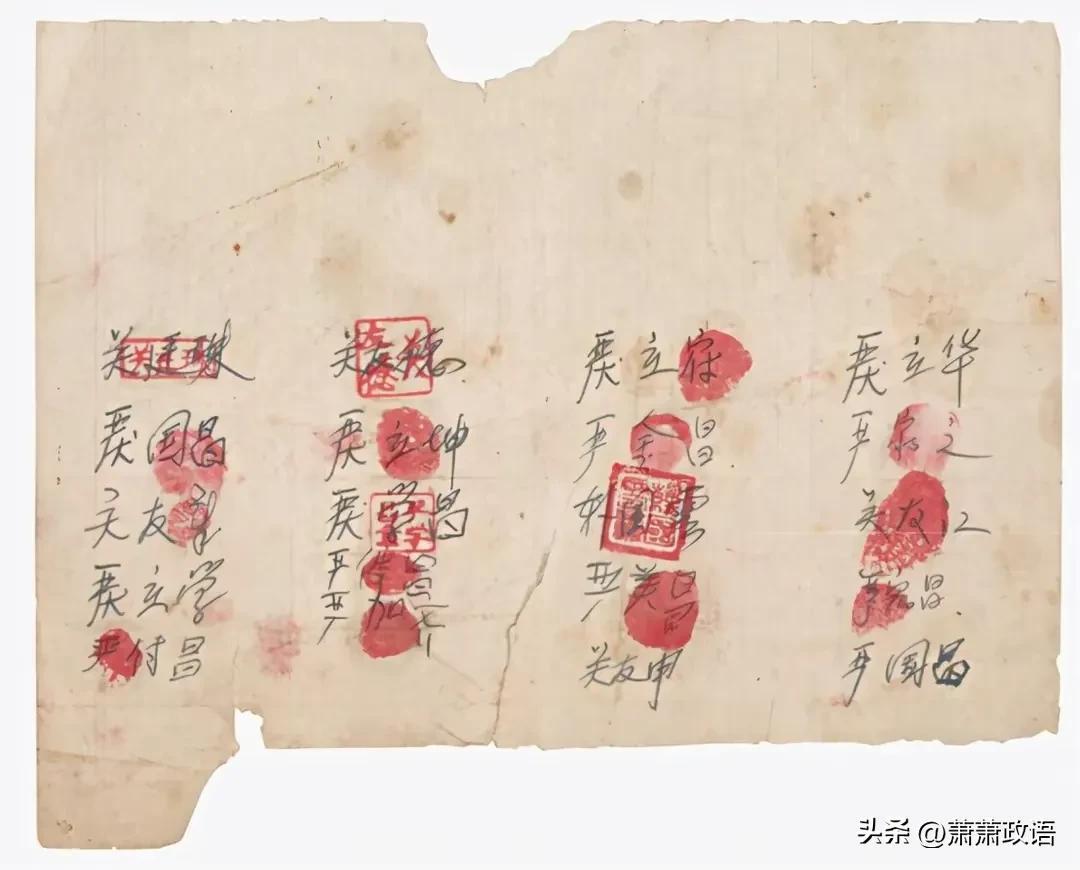 关廷珠 关友德 严立符 严立华
严国昌 严立坤 严金昌 严家芝
关友章 严学昌 韩国云 关友江
严立学 严俊昌 严美昌 严宏昌
严付昌 关友申 严国品
头条 @萧萧政语